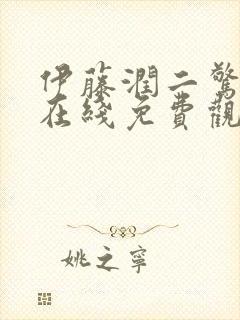 伊藤潤二驚
在綫免費觀
姚之寧